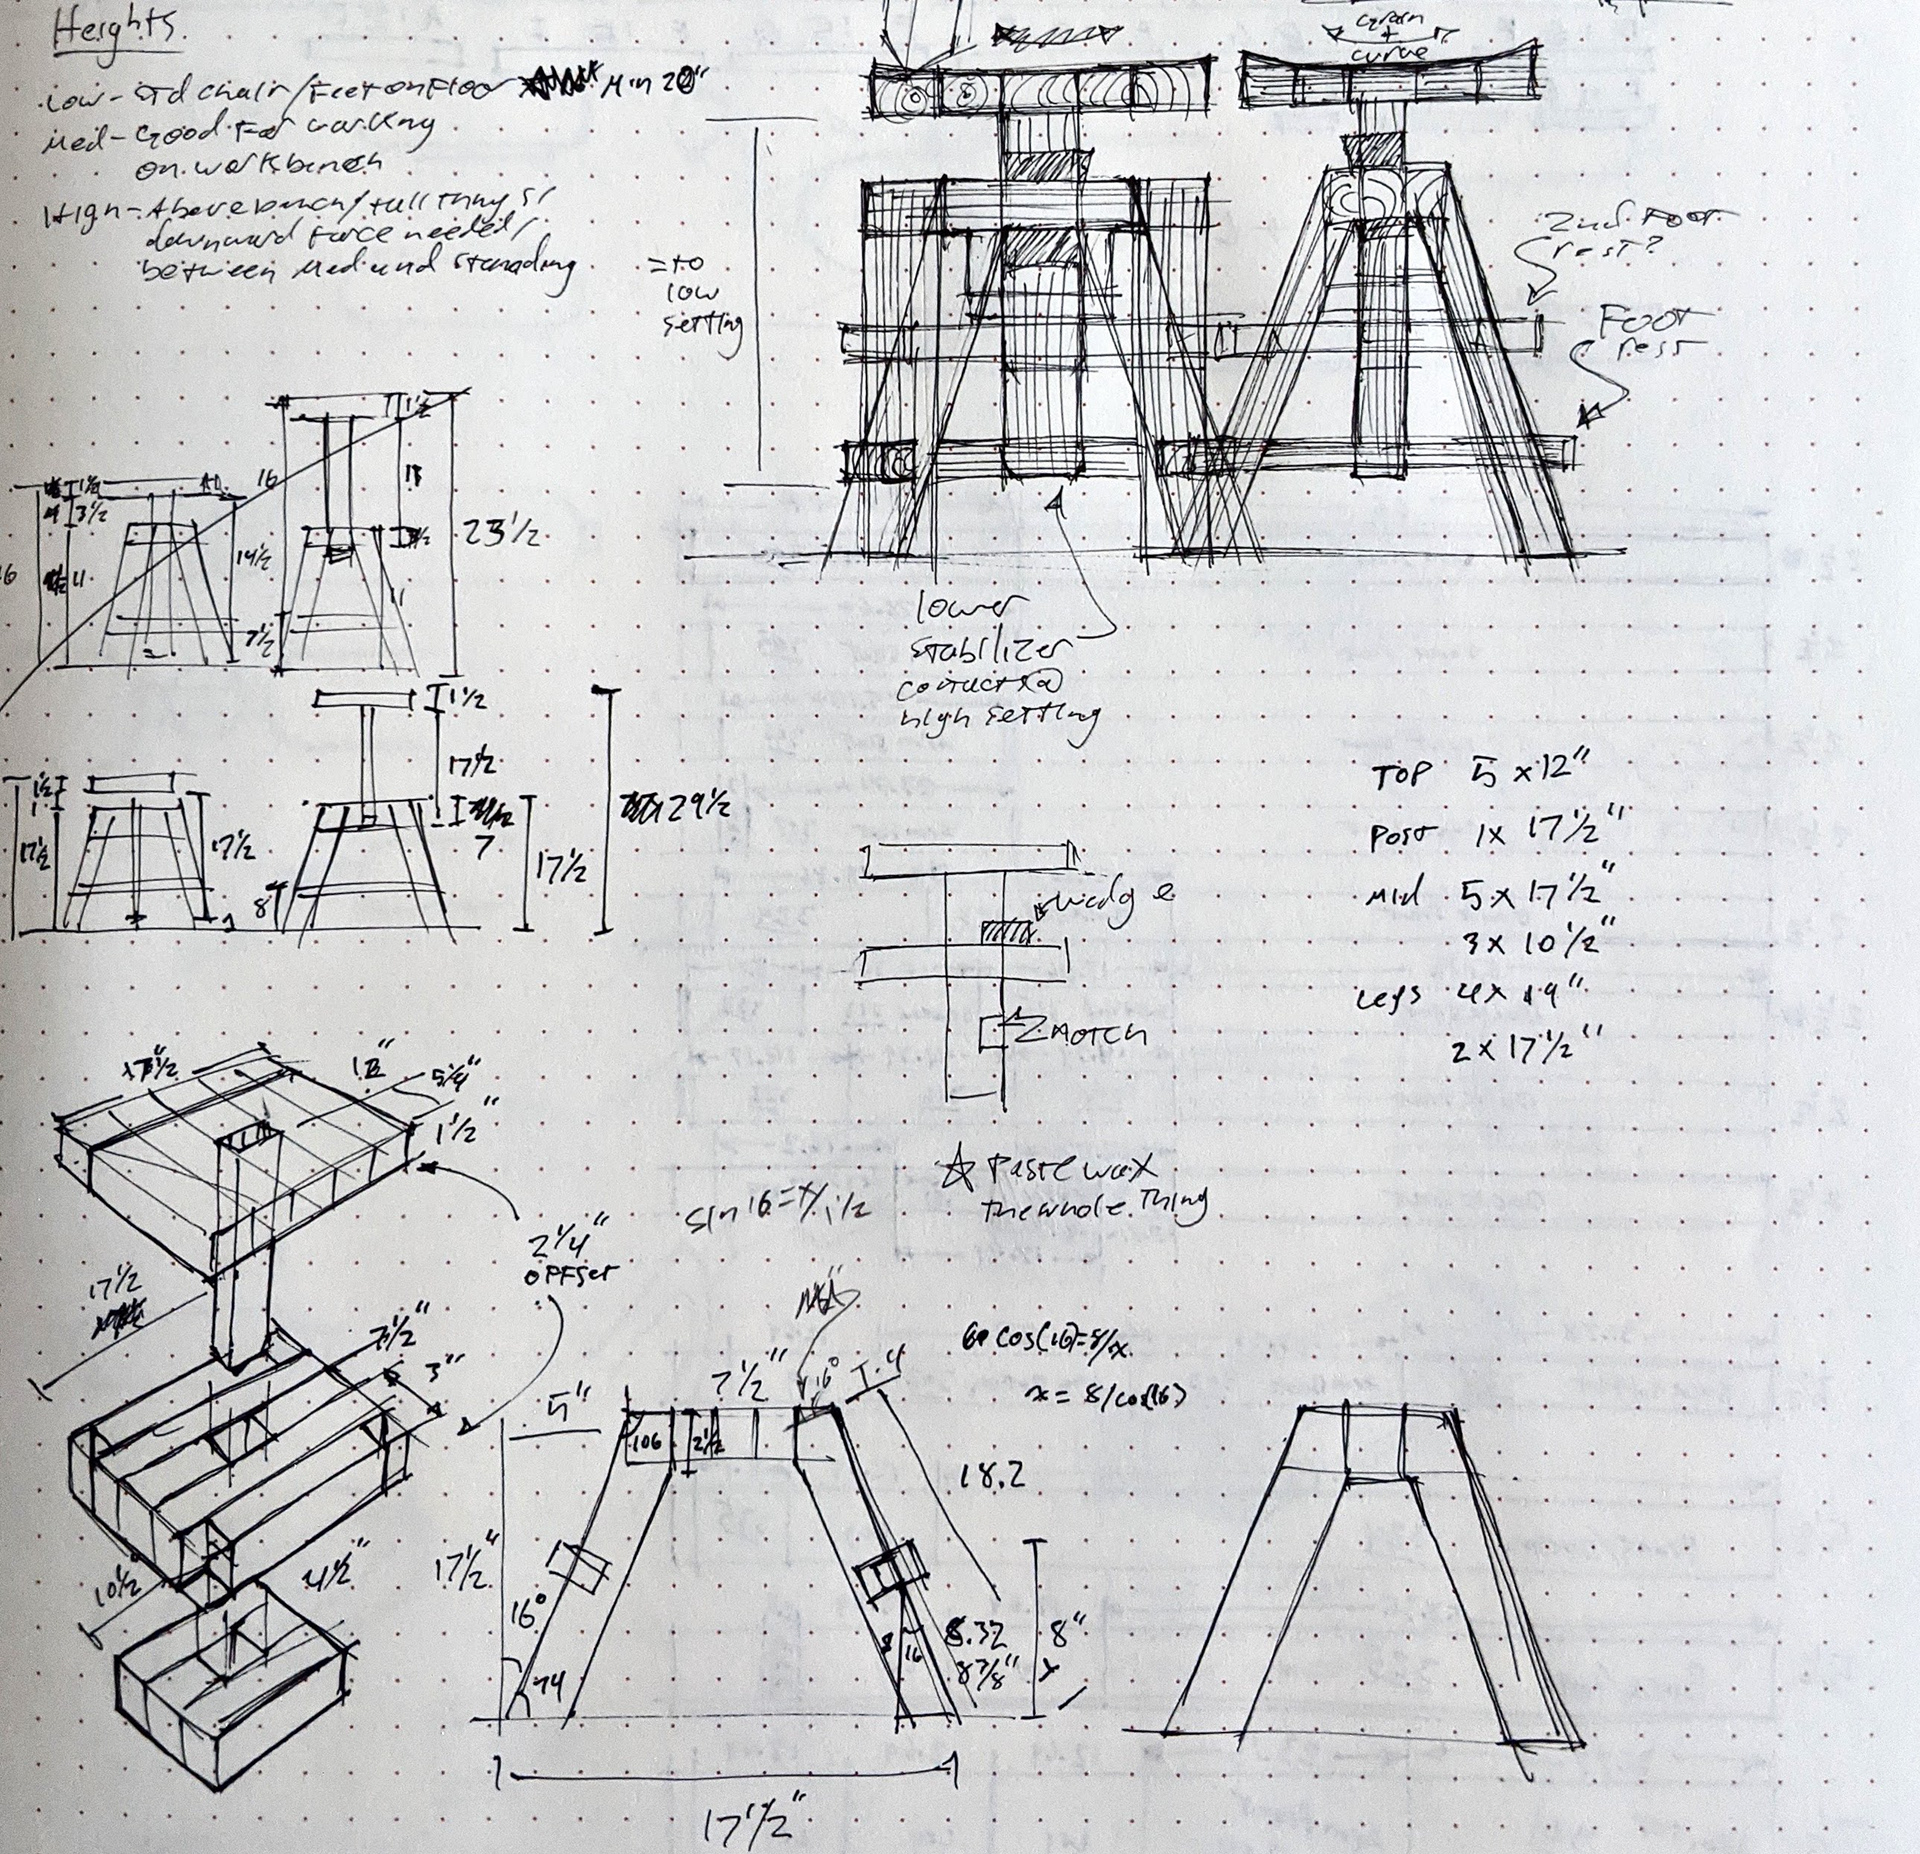 Heights
Low - STD chair/Feet on Floor Min 20"
Med - Good For working
on workbench
High - Above bench/tall things/
downward force needed/
between Med and standing
Grain
+
curve
= to
low
setting
2nd Foot
rest?
Foot
rest
lower
stabilizer
contact @
high setting
1 1/2
3 1/2
14 1/2
16
1 1/2
23 1/2
7 1/2
1 1/2
1
17 1/2
17 1/2
1 1/2
17 1/2
7
8
17 1/2
29 1/2
TOP 5 x 12"
Post 1 x 17 1/2"
Mid 5 x 17 1/2"
3 x 10 1/2"
Legs 4 x 19"
2 x 17 1/2"
Wedge
Notch
☆ Paste wax
the whole thing
12"
5/4"
1 1/2"
2 1/4"
OFFset
17 1/2
7 1/2"
3"
10 1/2"
4 1/2"
sin 16 = x/1 1/2
cos(16) = 8/x
x = 8/cos(16)
5"
7 1/2"
16°
.4
106
2 1/2
18.2
17 1/2"
16°
74
8
16
8.32
8 7/8"
8"
17 1/2"